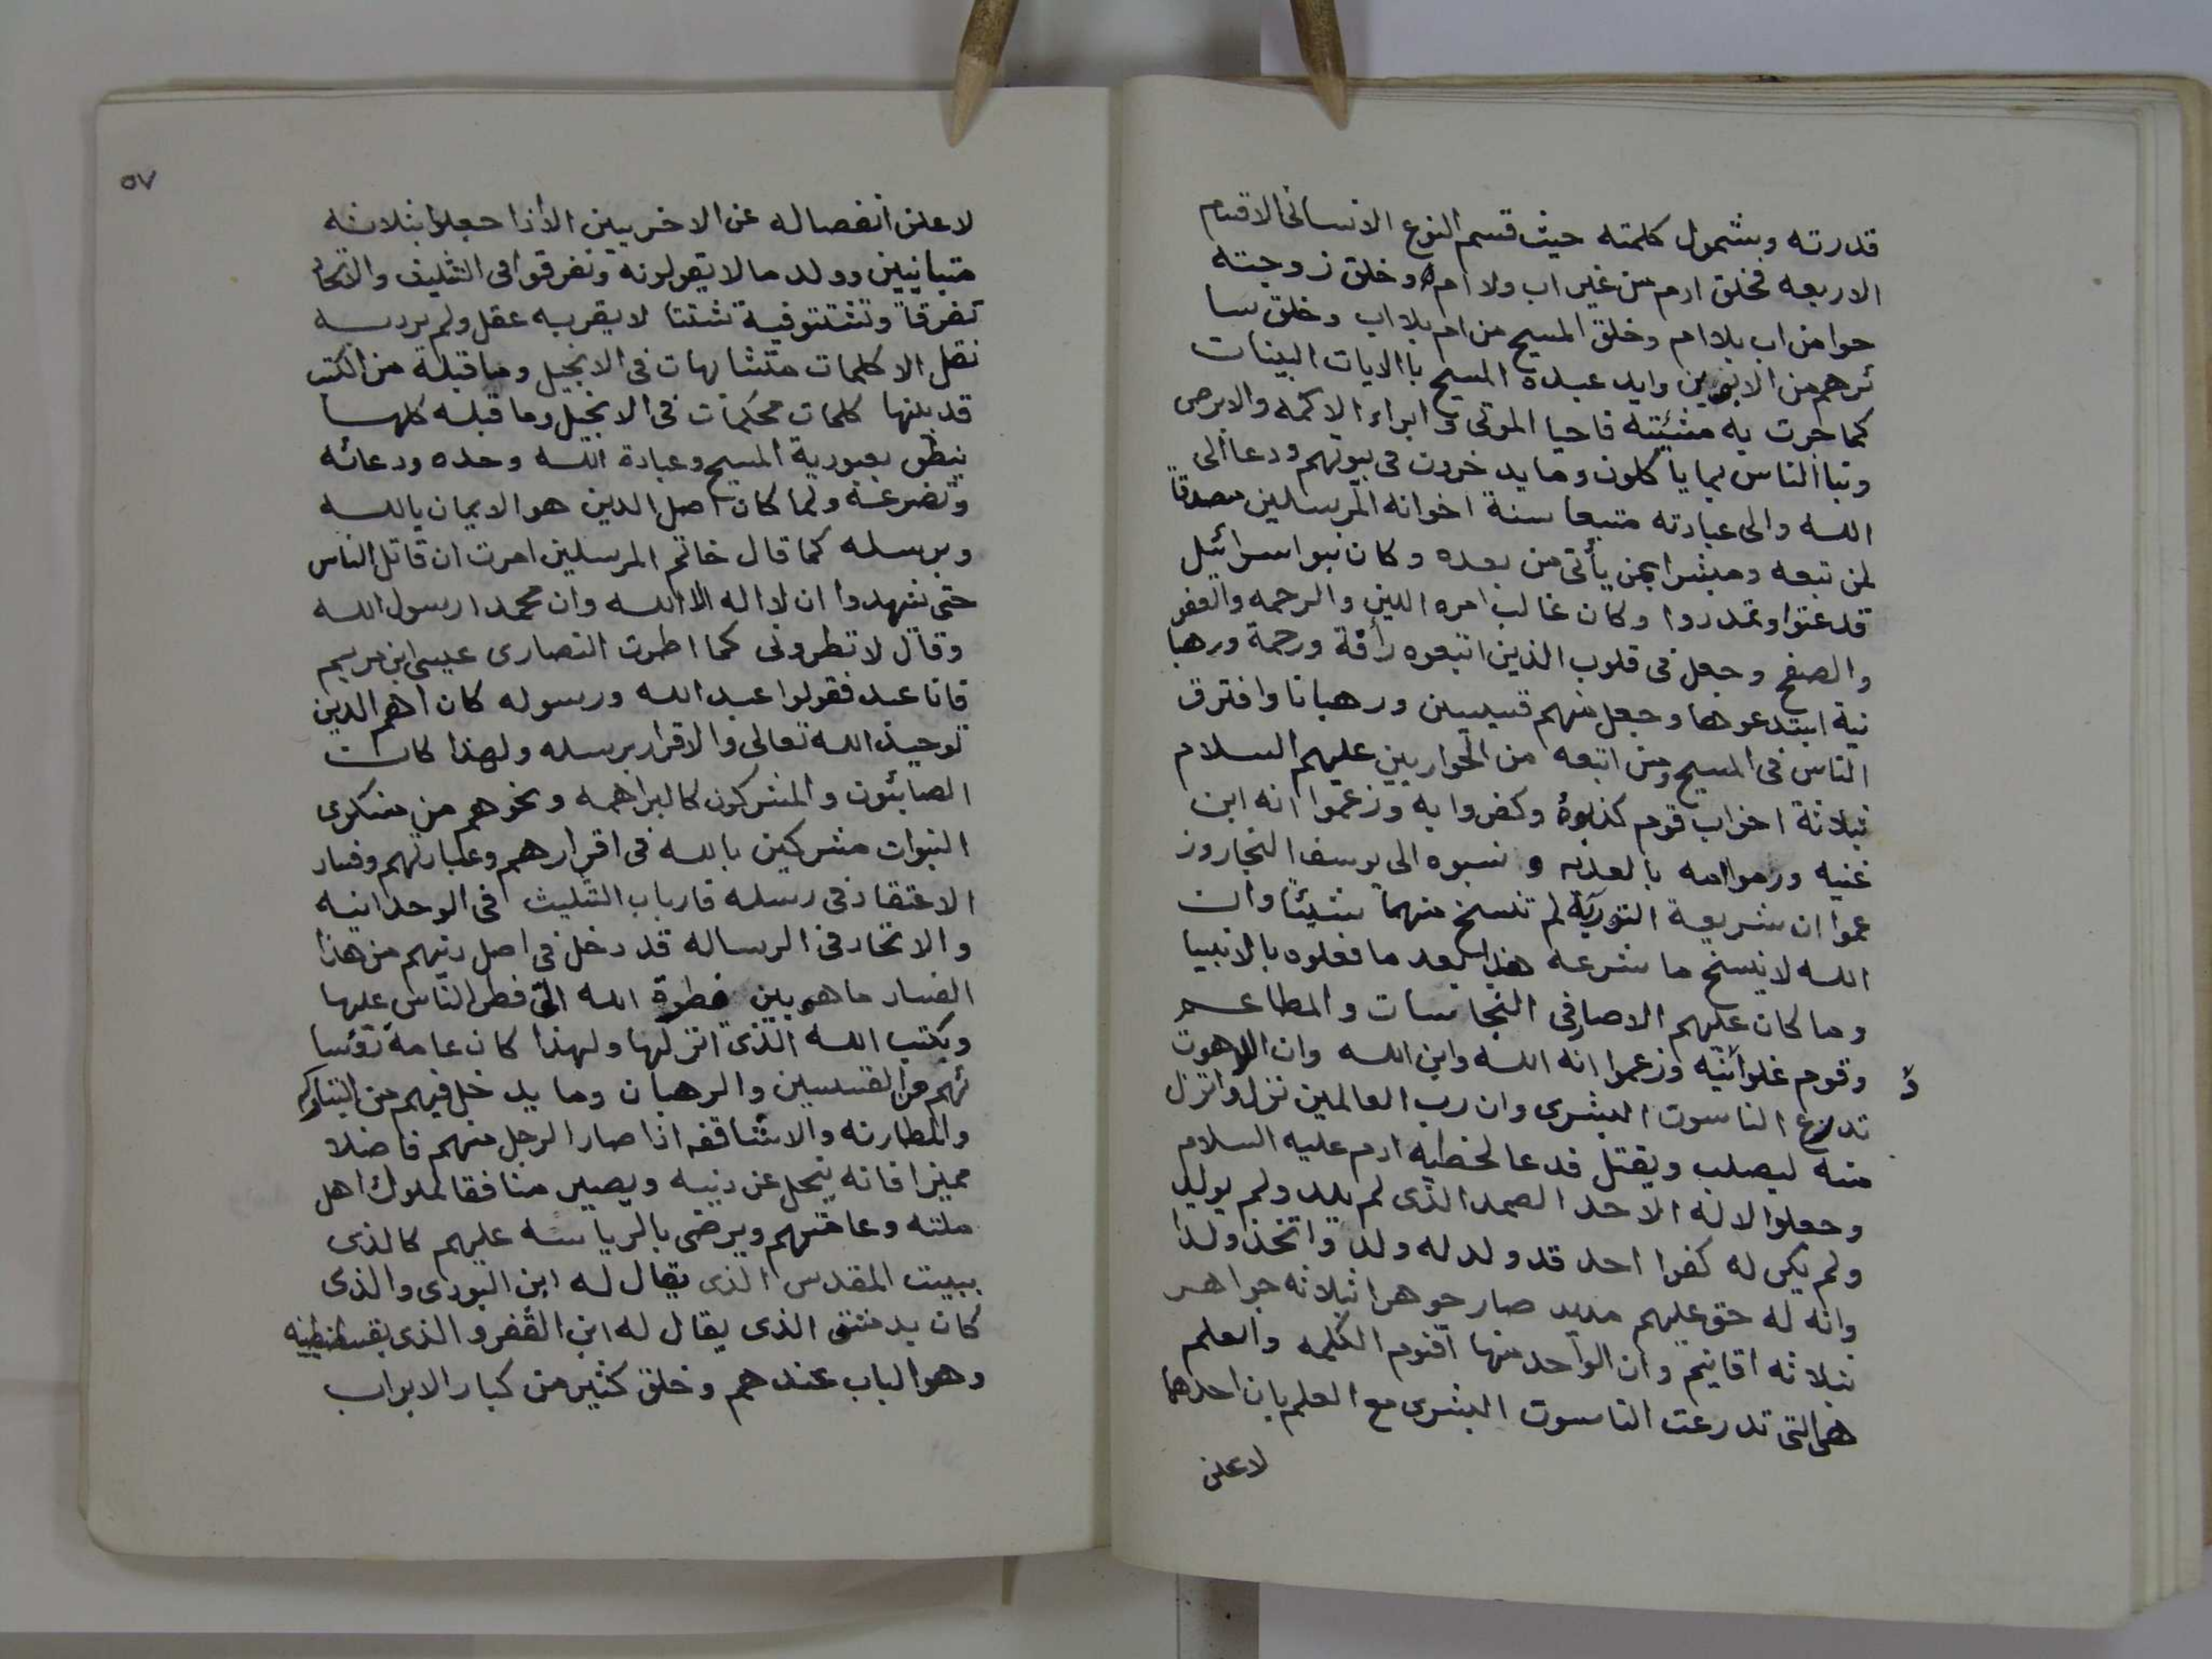 قدرته وبشمول كلمته حيث قسم النوع الانسانى الاقسام
الاربعه فخلق ادم من غير اب ولا ام وخلق زوجته
حوا من اب بلا ام وخلق المسيح من ام بلا اب وخلق سا
ئرهم من الابوين وايد عبده المسيح باالايات البينات
كما جرت به مشيئته فاحيا الموتى وابراء الاكمه والابرص
ونبا الناس بما ياكلون وما يدخرون فى بيوتهم ودعا الى
الله والى عبادته متبعا سنة اخوانه المرسلين مصدقا
لمن تبعه ومبشرا بمن يأتى من بعده وكان بنوا اسرائيل
قد عتوا وتمدروا وكان غالب امره اللين والرحمه والعفو
والصفح وجعل فى قلوب الذين اتبعوه رأفة ورحمة ورهبا
نية ابتدعوها وجعل منهم قسيسين ورهبانا وافترق
الناس فى المسيح ومن اتبعه من الحواريين عليهم السلام
ثبلاثة احزاب قوم كذبوه وكفروا به وزعموا انه ابن
غنيه ورموا امه بالعذيه ونسبوه الى يوسف النجار وز
عموا ان شريعة التورية لم تنسخ منهما شيئا وان
الله لا ينسخ ما شرعه بعد ما فعلوه بالانبيا
وما كان عليهم الاصار فى النجاسات والمطاعم
وقوم غلوا فيه وزعموا انه الله وابن الله وان اللاهوت
تدرع الناسوت البشرى وان رب العالمين نزل وانزل
منه ليصلب ويقتل فدعا لخطيه ادم عليه السلام
وجعلوا الاله الاحد الصمد الذى لم يلد ولم يولد
ولم يكن له كفوا احد قد ولد له ولد واتخذ ولدا
وانه له حق عليهم مديد صار جوهرا ثبلاثه جواهر
ثبلاثه اقانيم وان الواحد منها اقنوم الكلمه والعلم
هى التى تدرعت الناسوت البشرى مع العلم بان احدهما
لا علن
٥٧
لا علن انفصاله عن الاخريين الا اذا جعلوا بثلاثه
متباينيين وولد ما لا يقولونه وتفرقوا فى التثليث والاتحاد
تفرقا وتشتتو فية تشتتا لا يقربه عقل ولم يرد به
نقل الا كلمات متشابهات فى الانجيل وما قبلة من الكتب
قد بلنها كلمات محكمات فى الانجيل وما قبله كلها
ينطق بعبودية المسيح وعبادة الله وحده ودعائه
وتضرعه ولما كان اصل الدين هو الايمان بالله
وبرسله كما قال خاتم المرسلين امرت ان قاتل الناس
حتى تشهدوا ان لا اله الا الله وان محمدا رسول الله
وقال لا تطرونى كما اطرت النصارى عيسى ابن مريم
فانا عبد فقولوا عبد الله ورسوله كان اهم الدين
توحيد الله تعالى والاقرار برسله ولهذا كانت
الصابئون والمشركون كالبراهمه ونحوهم من منكرى
النبوات مشركين بالله فى اقرارهم وعبارتهم وفساد
الاعتقاد فى رسله فارباب التثليث فى الوحدانيه
والاتحاد فى الرساله قد دخل فى اصل دينهم من هذا
الفساد ما هو بين فطرة الله التى فطر الناس عليها
وبكتب الله الذى انزلها ولهذا كان عامة رؤسا
ئهم من القسسين والرهبان وما يدخل فيهم من البتاركه
والمطارنه والاشاقفه اذا صار الرجل منهم فاضلا
مميزا فانه ينحل عن دينه ويصير منافقا لملوك اهل
ملته وعامتهم ويرضى بالرياسه عليهم كالذى
ببيت المقدس الذى يقال له ابن البورى والذى
كان بدمشق الذى يقال له ابن القفرو الذى بقسطنطينيه
وهو الباب عندهم وخلق كثير من كبار الابواب